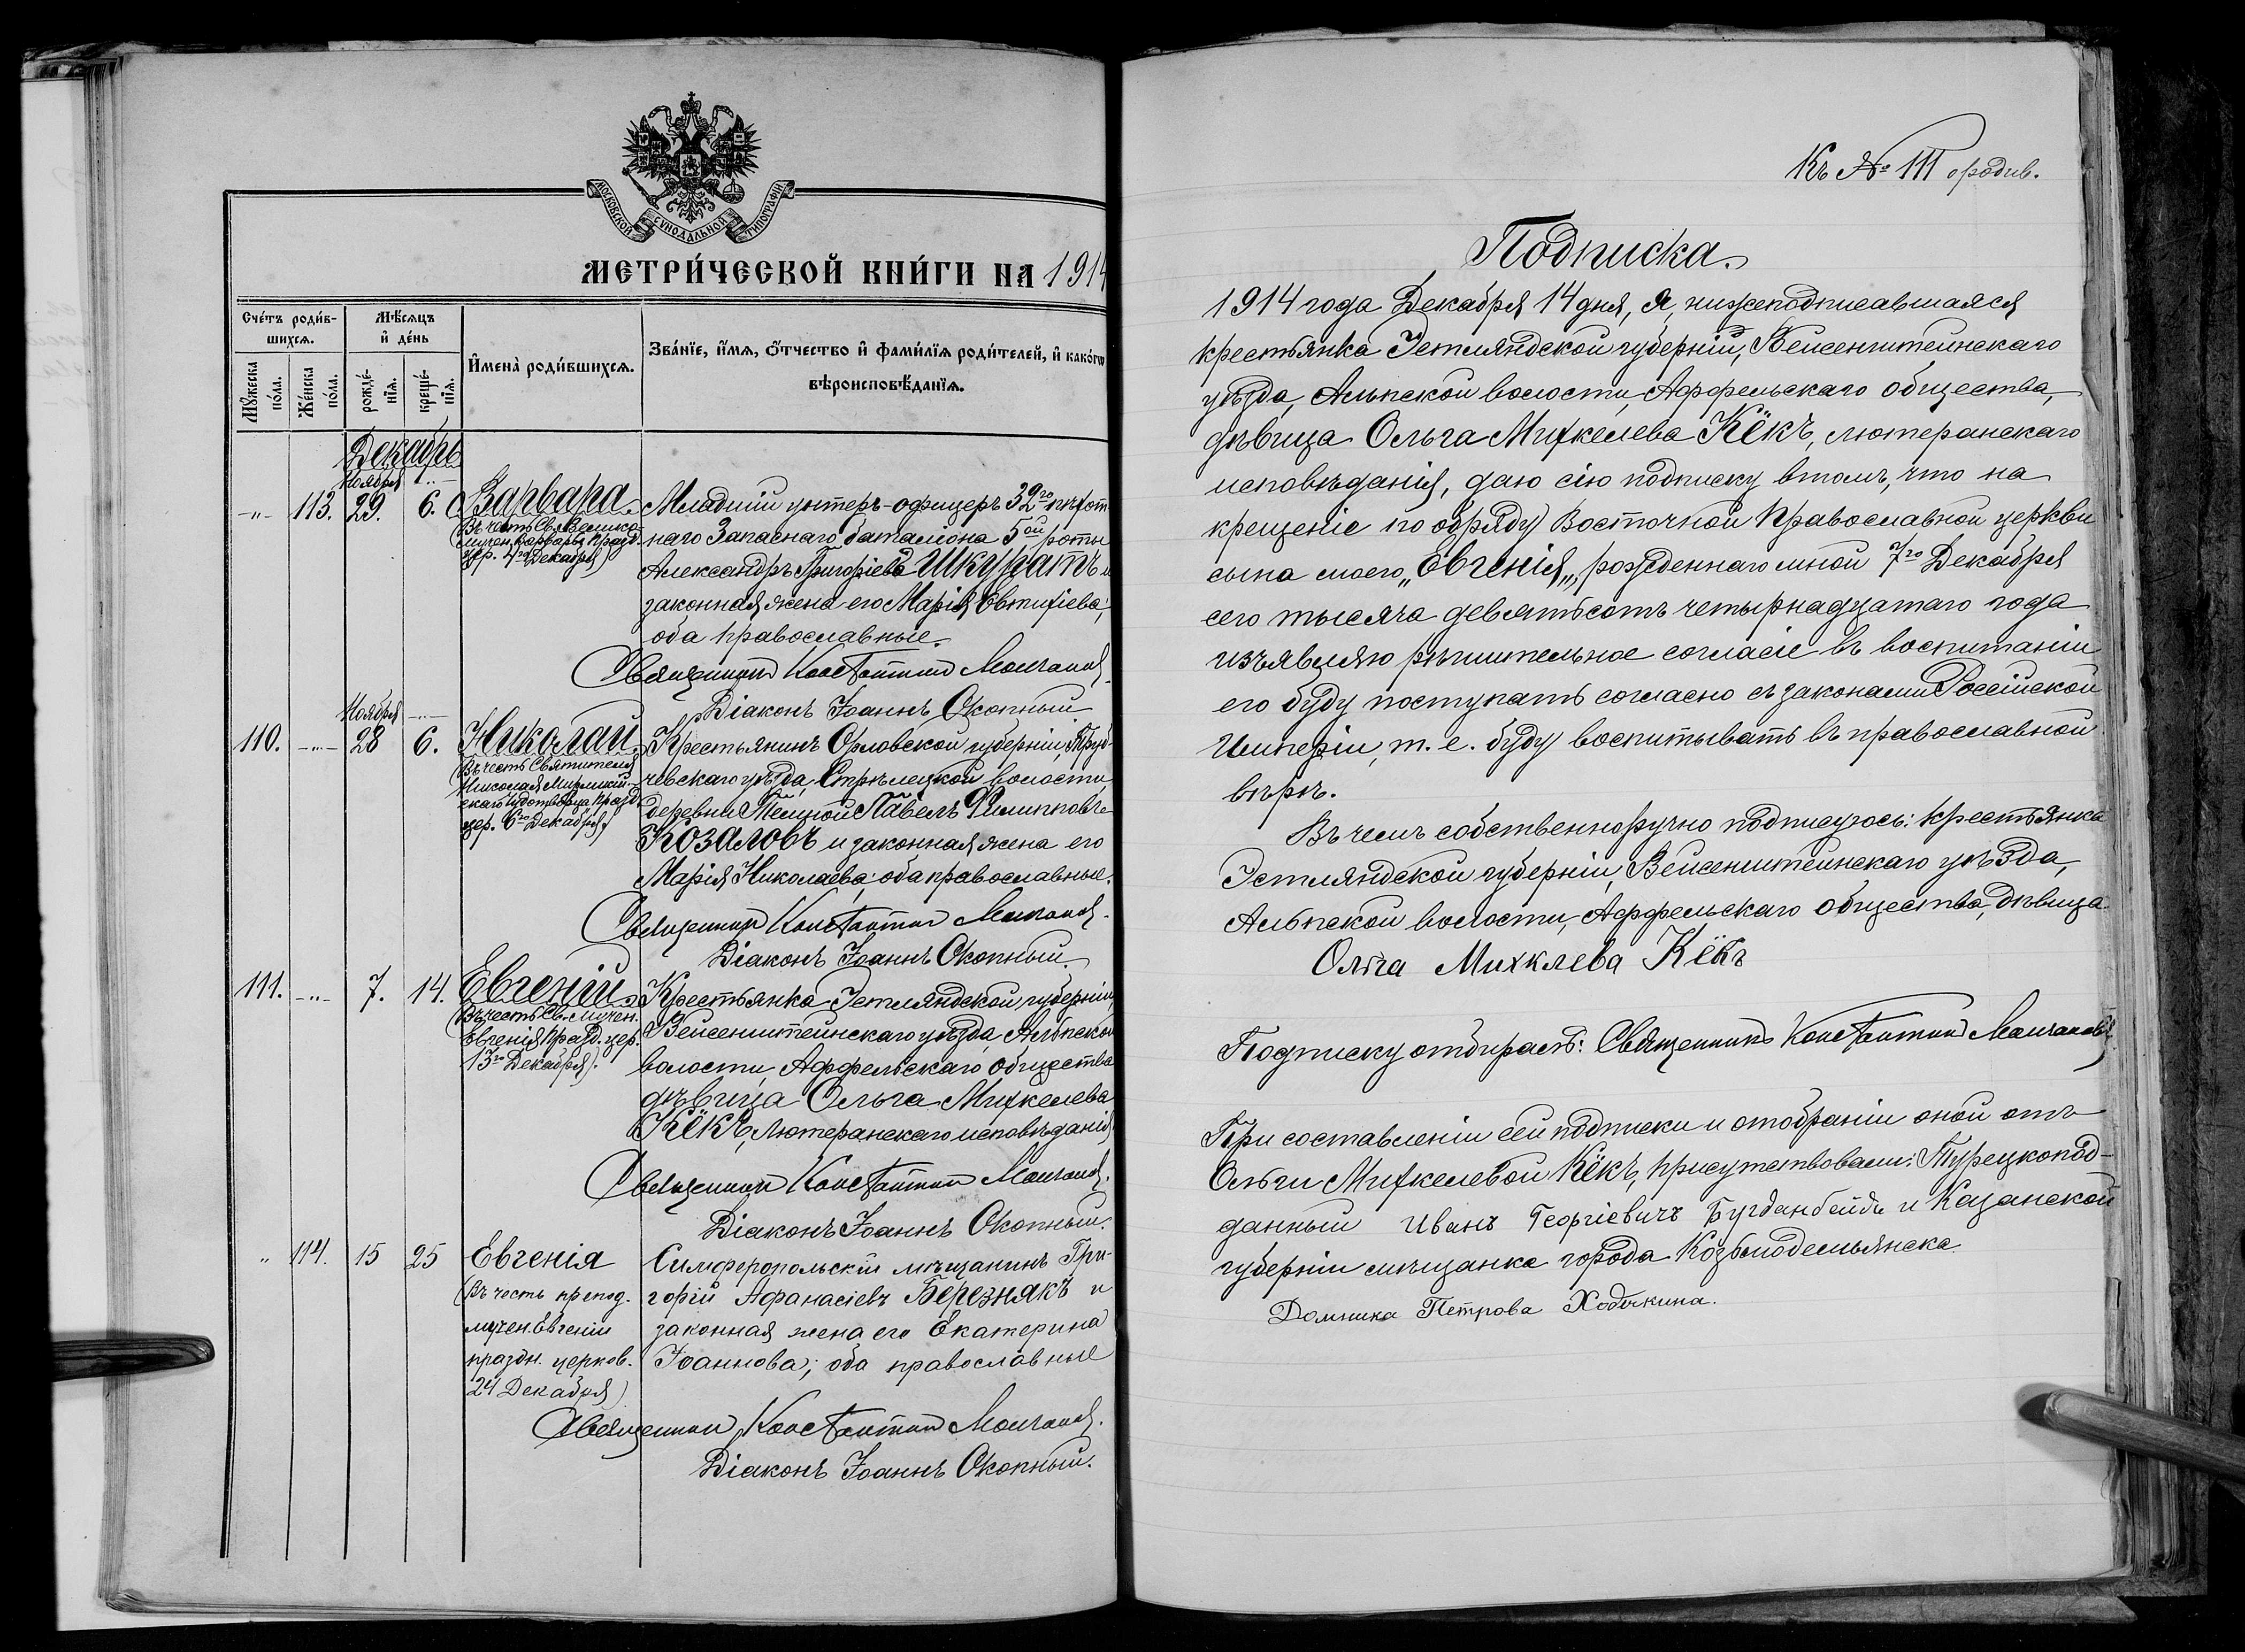 МОСКОВСКОЙ СѴНОДАЛЬНОЙ ТИПОГРАФІИ
МЕТРИ́ЧЕСКОЙ КНИ́ГИ НА 1914
Сче́тъ роди́в-
шихся.
Мѣ́сяцъ
и де́нь
Мꙋ́жеска по́ла.
Же́нска по́ла.
рожде́-
нїя.
креще́-
нїя.
И҆мена̀ роди́вшихся.
Зва́нїе, и҆́мя, ѻ҆́тчество и҆ фами́лїя роди́телей, и҆ како́гѡ
вѣроисповѣ́данїя.
Декабрь
Ноября
-„- 113. 29. 6. Варвара.
(Въ честь Св. Велико-
мучен. Варвары празд.
цер. 4го Декабря)
Младший унтеръ-офицеръ 32го пѣхот
наго Запаснаго баталиона 5ой роты
Александръ Григоріевъ Шкуратъ и
законная жена его Марія Евтихіева;
оба православные.
Священникъ Константинъ Молчановъ.
Діаконъ Іоаннъ Окопный
Ноября
110. -„- 28 6. Николай.
(Въ честь Святителя
Николая Мирликій-
скаго Чудотворца празд.
цер. 6го Декабря)
Крестьянинъ Орловской губерніи, Труб-
чевскаго уѣзда, Стрѣлецкой волости,
деревни Темной Павелъ Филипповъ
Козаловъ и законная жена его
Марія Николаева; оба православные.
Священникъ Константинъ Молчановъ.
Діаконъ Іоаннъ Окопный.
111. -„- 7. 14. Евгеній.
(Въ честь Св. мучен.
Евгенія празд. цер.
13го Декабря).
Крестьянка Эстляндской губерніи,
Вейсенштейнскаго уѣзда, Альпской
волости, Аффельскаго общества
дѣвица Ольга Михкелева
Кёкъ, лютеранскаго исповѣданія
Священникъ Константинъ Молчановъ.
Діаконъ Іоаннъ Окопный.
„ 114. 15 25 Евгенія
(Въ честь препод.
мучен. Евгеніи
праздн. церков.
24 Декабря)
Симферопольскій мѣщанинъ Гри-
горій Афанасіевъ Березнякъ и
законная жена его Екатерина
Іоаннова; оба православные
Священникъ Константинъ Молчановъ.
Діаконъ Іоаннъ Окопный.
Къ № 111 о родив.
Подписка.
1914 года Декабря 14 дня, я, нижеподписавшаяся
крестьянка Эстляндской губерніи, Вейсенштейнскаго
уѣзда, Альпской волости, Аффельскаго общества,
дѣвица Ольга Михкелева Кёкъ, лютеранскаго
исповѣданія, даю сію подписку втомъ, что на
крещеніе по обряду Восточной Православной церкви
сына моего „Евгенія„, рожденнаго мной 7го Декабря
сего тысяча девятьсотъ четырнадцатаго года
изъявляю рѣшительное согласіе въ воспитаніи
его буду поступать согласно съ законами Россійской
Имперіи, т. е. буду воспитывать въ православной
вѣрѣ.
Въ чемъ собственноручно подписуюсь: крестьянка
Эстляндской губерніи, Вейсенштейнскаго уѣзда,
Альпской волости, Аффельскаго общества, дѣвица
Ольга Михклева Кёкъ
Подписку отбиралъ: Священникъ Константинъ Молчановъ
При составленіи сей подписки и отобраніи оной отъ
Ольги Михкелевой Кёкъ, присутствовали: Турецкопод-
данный Иванъ Георгіевичъ и Казанской
губерніи мѣщанка города Козьмодемьянска
Домника Петрова Ходочкина.